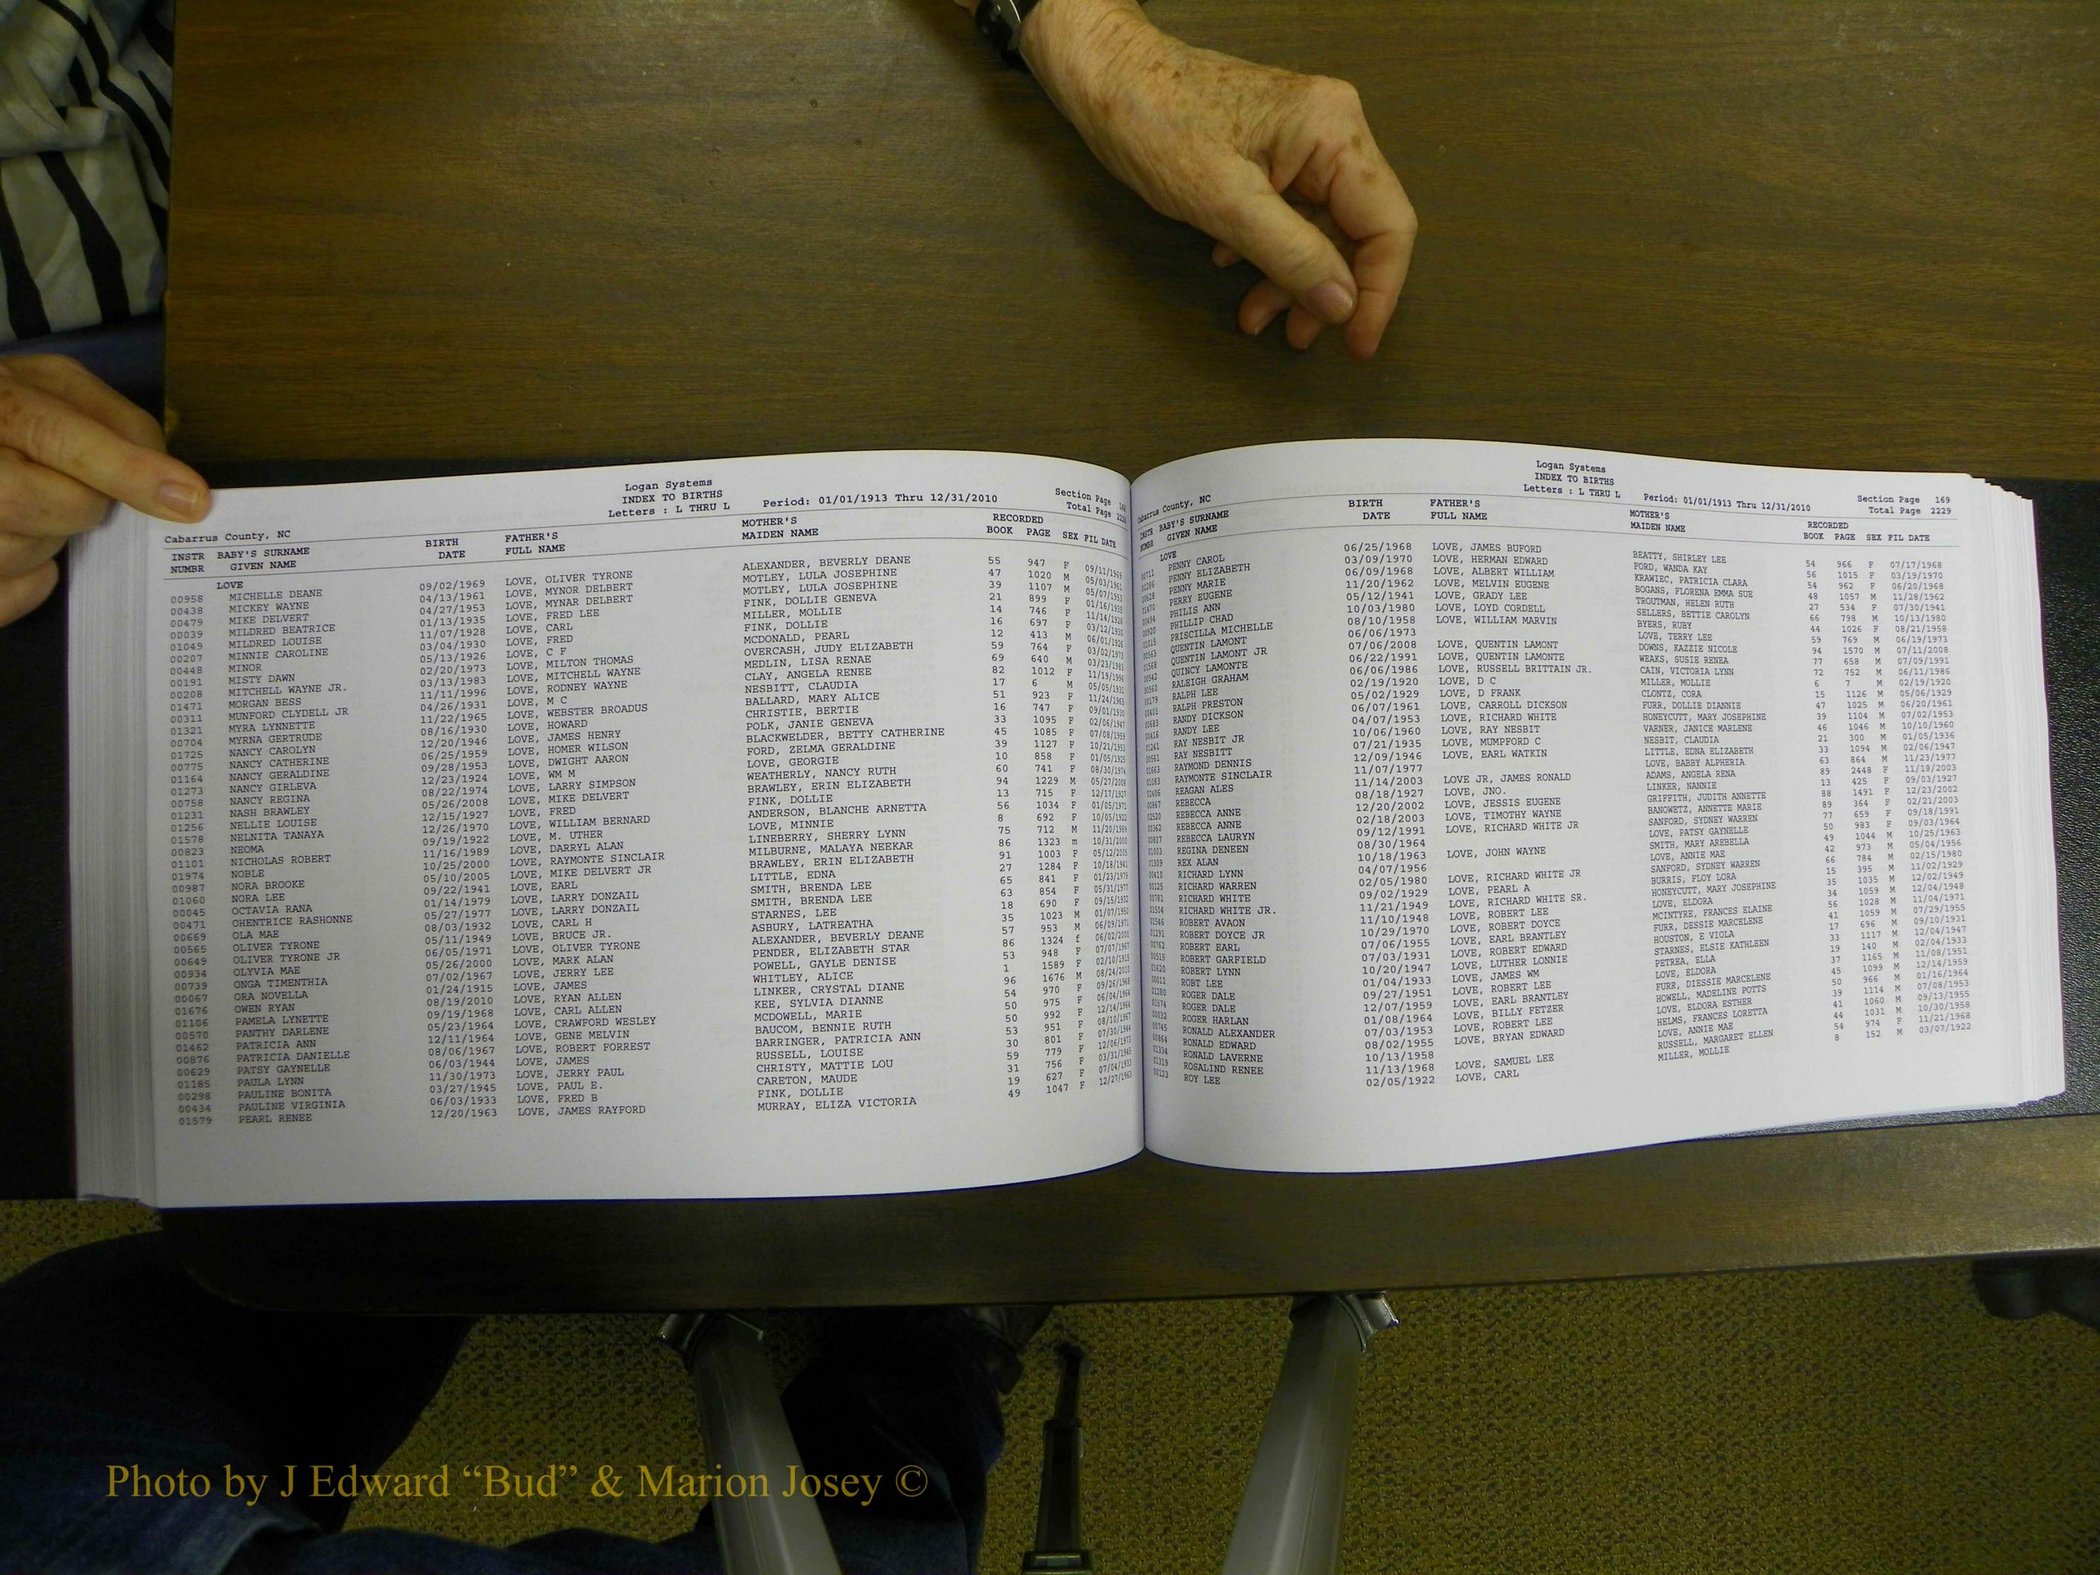 Logan Systems
INDEX TO BIRTHS
Letters : L THRU L Period: 01/01/1913 Thru 12/31/2010
Section Page 168
Total Page 2228
Cabarrus County, NC
INSTR BABY'S SURNAME BIRTH FATHER'S MOTHER'S RECORDED
NUMBR GIVEN NAME DATE FULL NAME MAIDEN NAME BOOK PAGE SEX FIL DATE
LOVE
00958 MICHELLE DEANE 09/02/1969 LOVE, OLIVER TYRONE ALEXANDER, BEVERLY DEANE 55 947 F 09/11/1969
00438 MICKEY WAYNE 04/13/1961 LOVE, MYNOR DELBERT MOTLEY, LULA JOSEPHINE 47 1020 M 05/03/1961
00479 MIKE DELVERT 04/27/1953 LOVE, MYNAR DELBERT MOTLEY, LULA JOSEPHINE 39 1107 M 05/07/1953
00039 MILDRED BEATRICE 01/13/1935 LOVE, FRED LEE FINK, DOLLIE GENEVA 21 899 F 01/16/1935
01049 MILDRED LOUISE 11/07/1928 LOVE, CARL MILLER, MOLLIE 14 746 F 11/14/1928
00207 MINNIE CAROLINE 03/04/1930 LOVE, FRED FINK, DOLLIE 16 697 F 03/12/1930
00448 MINOR 05/13/1926 LOVE, C F MCDONALD, PEARL 12 413 M 06/01/1926
00191 MISTY DAWN 02/20/1973 LOVE, MILTON THOMAS OVERCASH, JUDY ELIZABETH 59 764 F 03/02/1973
00208 MITCHELL WAYNE JR. 03/13/1983 LOVE, MITCHELL WAYNE MEDLIN, LISA RENAE 69 640 M 03/23/1983
01471 MORGAN BESS 11/11/1996 LOVE, RODNEY WAYNE CLAY, ANGELA RENEE 82 1012 F 11/19/1996
00311 MUNFORD CLYDELL JR 04/26/1931 LOVE, M C NESBITT, CLAUDIA 17 6 M 05/05/1931
01321 MYRA LYNNETTE 11/22/1965 LOVE, WEBSTER BROADUS BALLARD, MARY ALICE 51 923 F 11/24/1965
00704 MYRNA GERTRUDE 08/16/1930 LOVE, HOWARD CHRISTIE, BERTIE 16 747 F 09/01/1930
01725 NANCY CAROLYN 12/20/1946 LOVE, JAMES HENRY POLK, JANIE GENEVA 33 1095 F 02/06/1947
00775 NANCY CATHERINE 06/25/1959 LOVE, HOMER WILSON BLACKWELDER, BETTY CATHERINE 45 1085 F 07/08/1959
01164 NANCY GERALDINE 09/28/1953 LOVE, DWIGHT AARON FORD, ZELMA GERALDINE 39 1127 F 10/21/1953
01273 NANCY GIRLEVA 12/23/1924 LOVE, WM M LOVE, GEORGIE 10 858 F 01/05/1925
00758 NANCY REGINA 08/22/1974 LOVE, LARRY SIMPSON WEATHERLY, NANCY RUTH 60 741 F 08/30/1974
01231 NASH BRAWLEY 05/26/2008 LOVE, MIKE DELVERT BRAWLEY, ERIN ELIZABETH 94 1229 M 05/27/2008
01256 NELLIE LOUISE 12/15/1927 LOVE, FRED FINK, DOLLIE 13 715 F 12/17/1927
01578 NELNITA TANAYA 12/26/1970 LOVE, WILLIAM BERNARD ANDERSON, BLANCHE ARNETTA 56 1034 F 01/05/1971
00823 NEOMA 09/19/1922 LOVE, M. UTHER LOVE, MINNIE 8 692 F 10/05/1922
01101 NICHOLAS ROBERT 11/16/1989 LOVE, DARRYL ALAN LINEBERRY, SHERRY LYNN 75 712 M 11/20/1989
01974 NOBLE 10/25/2000 LOVE, RAYMONTE SINCLAIR MILBURNE, MALAYA NEEKAR 86 1323 m 10/31/2000
00987 NORA BROOKE 05/10/2005 LOVE, MIKE DELVERT JR BRAWLEY, ERIN ELIZABETH 91 1003 F 05/12/2005
01060 NORA LEE 09/22/1941 LOVE, EARL LITTLE, EDNA 27 1284 F 10/18/1941
00045 OCTAVIA RANA 01/14/1979 LOVE, LARRY DONZAIL SMITH, BRENDA LEE 65 841 F 01/23/1979
00471 OHENTRICE RASHONNE 05/27/1977 LOVE, LARRY DONZAIL SMITH, BRENDA LEE 63 854 F 05/31/1977
00669 OLA MAE 08/03/1932 LOVE, CARL H STARNES, LEE 18 690 F 09/15/1932
00565 OLIVER TYRONE 05/11/1949 LOVE, BRUCE JR. ASBURY, LATREATHA 35 1023 M 01/07/1950
00649 OLIVER TYRONE JR 06/05/1971 LOVE, OLIVER TYRONE ALEXANDER, BEVERLY DEANE 57 953 M 06/09/1971
00934 OLYVIA MAE 05/26/2000 LOVE, MARK ALAN PENDER, ELIZABETH STAR 86 1324 f 06/02/2000
00739 ONGA TIMENTHIA 07/02/1967 LOVE, JERRY LEE POWELL, GAYLE DENISE 53 948 F 07/07/1967
00067 ORA NOVELLA 01/24/1915 LOVE, JAMES WHITLEY, ALICE 1 1589 F 02/10/1915
01676 OWEN RYAN 08/19/2010 LOVE, RYAN ALLEN LINKER, CRYSTAL DIANE 96 1676 M 08/24/2010
01106 PAMELA LYNETTE 09/19/1968 LOVE, CARL ALLEN KEE, SYLVIA DIANNE 54 970 F 09/26/1968
00570 PANTHY DARLENE 05/23/1964 LOVE, CRAWFORD WESLEY MCDOWELL, MARIE 50 975 F 06/04/1964
01462 PATRICIA ANN 12/11/1964 LOVE, GENE MELVIN BAUCOM, BENNIE RUTH 50 992 F 12/14/1964
00876 PATRICIA DANIELLE 08/06/1967 LOVE, ROBERT FORREST BARRINGER, PATRICIA ANN 53 951 F 08/10/1967
00629 PATSY GAYNELLE 06/03/1944 LOVE, JAMES RUSSELL, LOUISE 30 801 F 07/30/1944
01185 PAULA LYNN 11/30/1973 LOVE, JERRY PAUL CHRISTY, MATTIE LOU 59 779 F 12/06/1973
00298 PAULINE BONITA 03/27/1945 LOVE, PAUL E. CARETON, MAUDE 31 756 F 03/31/1945
00434 PAULINE VIRGINIA 06/03/1933 LOVE, FRED B FINK, DOLLIE 19 627 F 07/04/1933
01579 PEARL RENEE 12/20/1963 LOVE, JAMES RAYFORD MURRAY, ELIZA VICTORIA 49 1047 F 12/27/1963
Logan Systems
INDEX TO BIRTHS
Letters : L THRU L Period: 01/01/1913 Thru 12/31/2010
Section Page 169
Total Page 2229
Cabarrus County, NC
INSTR BABY'S SURNAME BIRTH FATHER'S MOTHER'S RECORDED
NUMBR GIVEN NAME DATE FULL NAME MAIDEN NAME BOOK PAGE SEX FIL DATE
LOVE
PENNY CAROL 06/25/1968 LOVE, JAMES BUFORD BEATTY, SHIRLEY LEE 54 966 F 07/17/1968
PENNY ELIZABETH 03/09/1970 LOVE, HERMAN EDWARD FORD, WANDA KAY 56 1015 F 03/19/1970
PENNY MARIE 06/09/1968 LOVE, ALBERT WILLIAM KRAWIEC, PATRICIA CLARA 54 962 F 06/20/1968
PERRY EUGENE 11/20/1962 LOVE, MELVIN EUGENE BOGANS, FLORENA EMMA SUE 48 1057 M 11/28/1962
PHILIS ANN 05/12/1941 LOVE, GRADY LEE TROUTMAN, HELEN RUTH 27 534 F 07/30/1941
PHILLIP CHAD 10/03/1980 LOVE, LOYD CORDELL SELLERS, BETTIE CAROLYN 66 798 M 10/13/1980
PRISCILLA MICHELLE 08/10/1958 LOVE, WILLIAM MARVIN BYERS, RUBY 44 1026 F 08/21/1958
QUENTIN LAMONT 06/06/1973 LOVE, TERRY LEE 59 769 M 06/19/1973
QUENTIN LAMONT JR 07/06/2008 LOVE, QUENTIN LAMONT DOWNS, KAZZIE NICOLE 94 1570 M 07/11/2008
QUINCY LAMONTE 06/22/1991 LOVE, QUENTIN LAMONTE WEAKS, SUSIE RENEA 77 658 M 07/09/1991
RALEIGH GRAHAM 06/06/1986 LOVE, RUSSELL BRITTAIN JR. CAIN, VICTORIA LYNN 72 752 M 06/11/1986
RALPH LEE 02/19/1920 LOVE, D C MILLER, MOLLIE 6 7 M 02/19/1920
RALPH PRESTON 05/02/1929 LOVE, D FRANK CLONTZ, CORA 15 1126 M 05/06/1929
RANDY DICKSON 06/07/1961 LOVE, CARROLL DICKSON FURR, DOLLIE DIANNIE 47 1025 M 06/20/1961
RANDY LEE 04/07/1953 LOVE, RICHARD WHITE HONEYCUTT, MARY JOSEPHINE 39 1104 M 07/02/1953
RAY NESBIT JR 10/06/1960 LOVE, RAY NESBIT VARNER, JANICE MARLENE 46 1046 M 10/10/1960
RAY NESBITT 07/21/1935 LOVE, MUMPFORD C NESBIT, CLAUDIA 21 300 M 01/05/1936
RAYMOND DENNIS 12/09/1946 LOVE, EARL WATKIN LITTLE, EDNA ELIZABETH 33 1094 M 02/06/1947
RAYMONTE SINCLAIR 11/07/1977 LOVE, BABBY ALPHERIA 63 864 M 11/23/1977
REAGAN ALES 11/14/2003 LOVE JR, JAMES RONALD ADAMS, ANGELA RENA 89 2448 F 11/18/2003
REBECCA 08/18/1927 LOVE, JNO. LINKER, NANNIE 13 425 F 09/03/1927
REBECCA ANNE 12/20/2002 LOVE, JESSIS EUGENE GRIFFITH, JUDITH ANNETTE 88 1491 F 12/23/2002
REBECCA ANNE 02/18/2003 LOVE, TIMOTHY WAYNE BANOWETZ, ANNETTE MARIE 89 364 F 02/21/2003
REBECCA LAURYN 09/12/1991 LOVE, RICHARD WHITE JR SANFORD, SYDNEY WARREN 77 659 F 09/18/1991
REGINA DENEEN 08/30/1964 LOVE, PATSY GAYNELLE 50 983 F 09/03/1964
REX ALAN 10/18/1963 LOVE, JOHN WAYNE SMITH, MARY AREBELLA 49 1044 M 10/25/1963
RICHARD LYNN 04/07/1956 LOVE, ANNIE MAE 42 973 M 05/04/1956
RICHARD WARREN 02/05/1980 LOVE, RICHARD WHITE JR SANFORD, SYDNEY WARREN 66 784 M 02/15/1980
RICHARD WHITE 09/02/1929 LOVE, PEARL A BURRIS, FLOY LORA 15 395 M 11/02/1929
RICHARD WHITE JR. 11/21/1949 LOVE, RICHARD WHITE SR. HONEYCUTT, MARY JOSEPHINE 35 1035 M 12/02/1949
ROBERT AVAON 11/10/1948 LOVE, ROBERT LEE LOVE, ELDORA 34 1059 M 12/04/1948
ROBERT DOYCE JR 10/29/1970 LOVE, ROBERT DOYCE MCINTYRE, FRANCES ELAINE 56 1028 M 11/04/1971
ROBERT EARL 07/06/1955 LOVE, EARL BRANTLEY FURR, DESSIE MARCELENE 41 1059 M 07/29/1955
ROBERT GARFIELD 07/03/1931 LOVE, ROBERT EDWARD HOUSTON, E VIOLA 17 696 M 09/10/1931
ROBERT LYNN 10/20/1947 LOVE, LUTHER LONNIE STARNES, ELSIE KATHLEEN 33 1117 M 12/04/1947
ROBT LEE 01/04/1933 LOVE, JAMES WM PETREA, ELLA 19 140 M 02/04/1933
ROGER DALE 09/27/1951 LOVE, ROBERT LEE LOVE, ELDORA 37 1165 M 11/08/1951
ROGER DALE 12/07/1959 LOVE, EARL BRANTLEY FURR, DIESSIE MARCELENE 45 1099 M 12/14/1959
ROGER HARLAN 01/08/1964 LOVE, BILLY FETZER HOWELL, MADELINE POTTS 50 966 M 01/16/1964
RONALD ALEXANDER 07/03/1953 LOVE, ROBERT LEE LOVE, ELDORA ESTHER 39 1114 M 07/08/1953
RONALD EDWARD 08/02/1955 LOVE, BRYAN EDWARD HELMS, FRANCES LORETTA 41 1060 M 09/13/1955
RONALD LAVERNE 10/13/1958 LOVE, ANNIE MAE 44 1031 M 10/30/1958
ROSALIND RENEE 11/13/1968 LOVE, SAMUEL LEE RUSSELL, MARGARET ELLEN 54 974 F 11/21/1968
00123 ROY LEE 02/05/1922 LOVE, CARL MILLER, MOLLIE 8 152 M 03/07/1922
Photo by J Edward “Bud” & Marion Josey ©